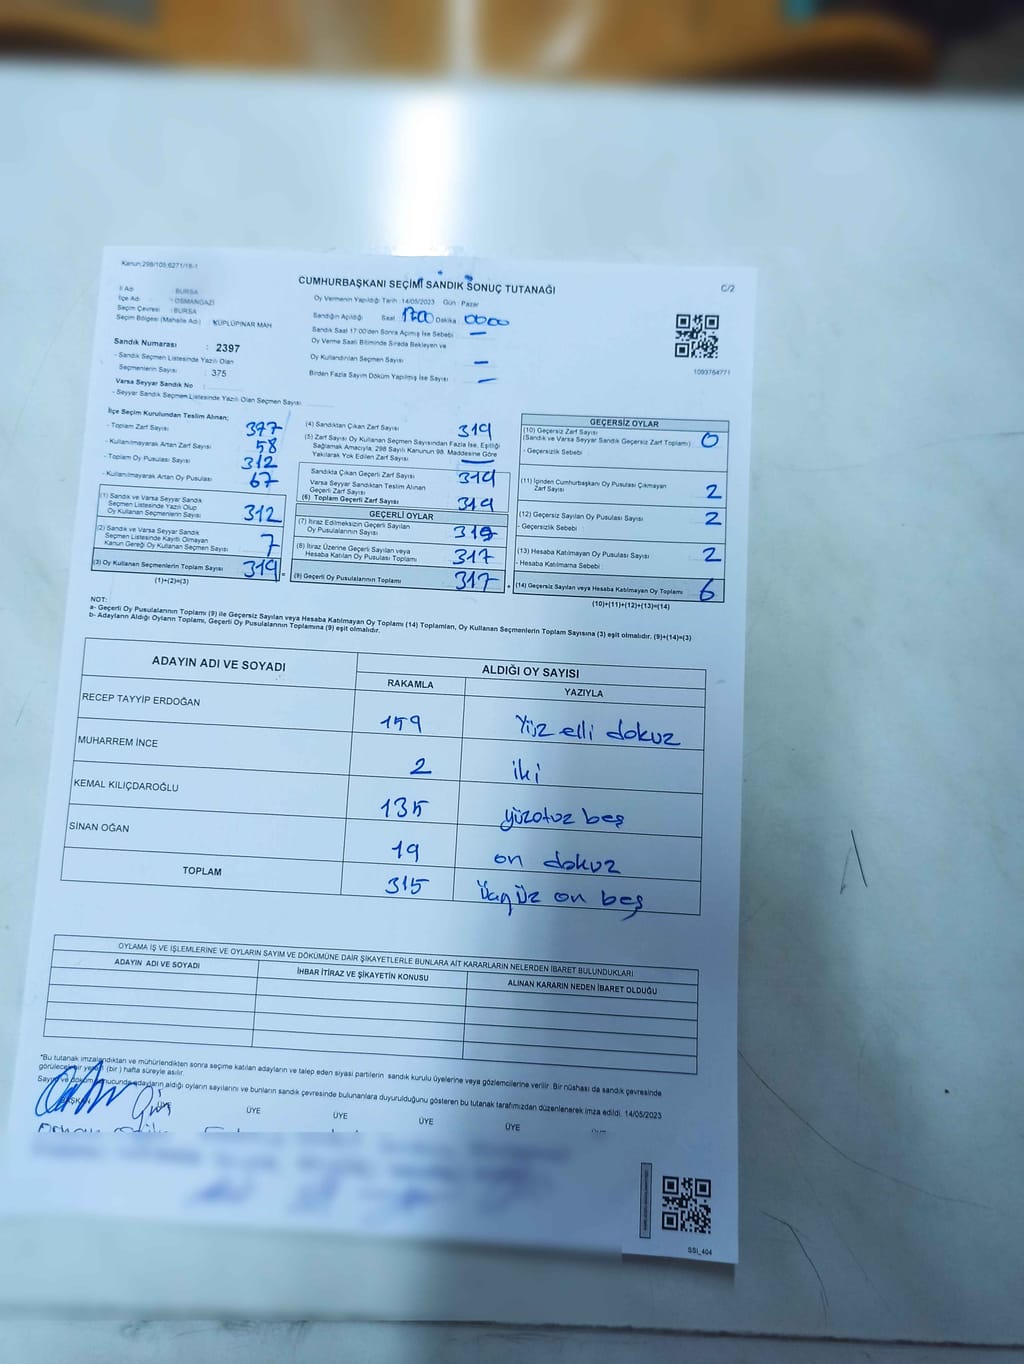 Kanun:298/105;6271/16-1
CUMHURBAŞKANI SEÇİMİ SANDIK SONUÇ TUTANAĞI
C/2
İl Adı : BURSA
İlçe Adı : OSMANGAZİ
Seçim Çevresi : BURSA
Seçim Bölgesi (Mahalle Adı) : KÜPLÜPINAR MAH
Oy Vermenin Yapıldığı Tarih :14/05/2023 Gün : Pazar
Sandığın Açıldığı Saat 17:00 Dakika :
Sandık Saat 17:00'den Sonra Açılmış İse Sebebi : —
Oy Verme Saati Bitiminde Sırada Bekleyen ve
Oy Kullandırılan Seçmen Sayısı : —
Birden Fazla Sayım Döküm Yapılmış İse Sayısı : —
1093764771
Sandık Numarası : 2397
- Sandık Seçmen Listesinde Yazılı Olan
Seçmenlerin Sayısı : 375
Varsa Seyyar Sandık No :
- Seyyar Sandık Seçmen Listesinde Yazılı Olan Seçmen Sayısı:
İlçe Seçim Kurulundan Teslim Alınan;
- Toplam Zarf Sayısı : 377
- Kullanılmayarak Artan Zarf Sayısı : 58
- Toplam Oy Pusulası Sayısı : 312
- Kullanılmayarak Artan Oy Pusulası : 67
(1) Sandık ve Varsa Seyyar Sandık
Seçmen Listesinde Yazılı Olup
Oy Kullanan Seçmenlerin Sayısı : 312
(2) Sandık ve Varsa Seyyar Sandık
Seçmen Listesinde Kayıtlı Olmayan
Kanun Gereği Oy Kullanan Seçmen Sayısı : 7
(3) Oy Kullanan Seçmenlerin Toplam Sayısı : 319
(1)+(2)=(3)
(4) Sandıktan Çıkan Zarf Sayısı : 319
(5) Zarf Sayısı Oy Kullanan Seçmen Sayısından Fazla İse, Eşitliği
Sağlamak Amacıyla, 298 Sayılı Kanunun 98. Maddesine Göre
Yakılarak Yok Edilen Zarf Sayısı : —
Sandıkta Çıkan Geçerli Zarf Sayısı : 319
Varsa Seyyar Sandıktan Teslim Alınan
Geçerli Zarf Sayısı :
(6) Toplam Geçerli Zarf Sayısı : 319
GEÇERLİ OYLAR
(7) İtiraz Edilmeksizin Geçerli Sayılan
Oy Pusulalarının Sayısı :
(8) İtiraz Üzerine Geçerli Sayılan veya
Hesaba Katılan Oy Pusulası Toplamı : 317
(9) Geçerli Oy Pusulalarının Toplamı : 317
GEÇERSİZ OYLAR
(10) Geçersiz Zarf Sayısı
(Sandık ve Varsa Seyyar Sandık Geçersiz Zarf Toplamı) : 0
- Geçersizlik Sebebi :
(11) İçinden Cumhurbaşkanı Oy Pusulası Çıkmayan
Zarf Sayısı : 2
(12) Geçersiz Sayılan Oy Pusulası Sayısı : 2
- Geçersizlik Sebebi :
(13) Hesaba Katılmayan Oy Pusulası Sayısı : 2
- Hesaba Katılmama Sebebi :
(14) Geçersiz Sayılan veya Hesaba Katılmayan Oy Toplamı : 6
(10)+(11)+(12)+(13)=(14)
NOT:
a- Geçerli Oy Pusulalarının Toplamı (9) ile Geçersiz Sayılan veya Hesaba Katılmayan Oy Toplamı (14) Toplamları, Oy Kullanan Seçmenlerin Toplam Sayısına (3) eşit olmalıdır. (9)+(14)=(3)
b- Adayların Aldığı Oyların Toplamı, Geçerli Oy Pusulalarının Toplamına (9) eşit olmalıdır.
ADAYIN ADI VE SOYADI ALDIĞI OY SAYISI
RAKAMLA YAZIYLA
RECEP TAYYİP ERDOĞAN 159 Yüz elli dokuz
MUHARREM İNCE 2 iki
KEMAL KILIÇDAROĞLU 135 yüzotuz beş
SİNAN OĞAN 19 on dokuz
TOPLAM 315 üçyüz on beş
OYLAMA İŞ VE İŞLEMLERİNE VE OYLARIN SAYIM VE DÖKÜMÜNE DAİR ŞİKAYETLERLE BUNLARA AİT KARARLARIN NELERDEN İBARET BULUNDUKLARI
ADAYIN ADI VE SOYADI İHBAR İTİRAZ VE ŞİKAYETİN KONUSU ALINAN KARARIN NEDEN İBARET OLDUĞU
*Bu tutanak imzalandıktan ve mühürlendikten sonra seçime katılan adayların ve talep eden siyasi partilerin sandık kurulu üyelerine veya gözlemcilerine verilir. Bir nüshası da sandık çevresinde
görülecek bir yere (bir ) hafta süreyle asılır.
Sayım ve döküm sonucunda adayların aldığı oyların sayılarını ve bunların sandık çevresinde bulunanlara duyurulduğunu gösteren bu tutanak tarafımızdan düzenlenerek imza edildi. 14/05/2023
BAŞKAN ÜYE ÜYE ÜYE ÜYE ÜYE
SSI_404